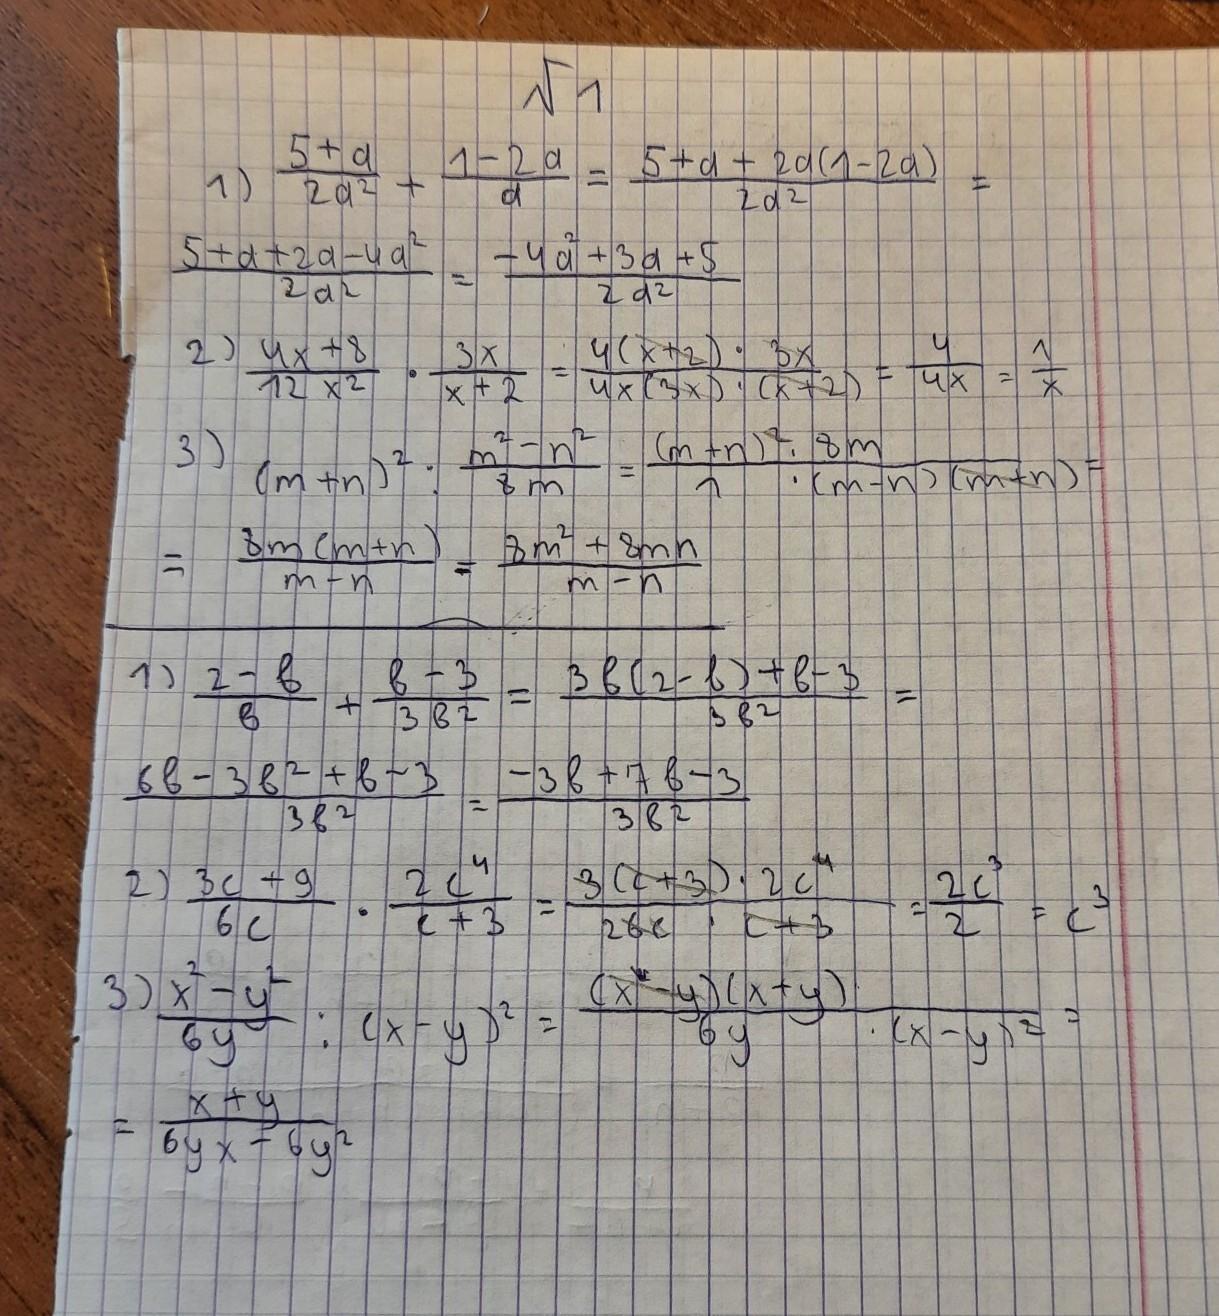 √1
1) (5+a)/(2a²) + (1-2a)/a = (5+a+2a(1-2a))/(2a²) =
(5+a+2a-4a²)/(2a²) = (-4a²+3a+5)/(2a²)
2) (4x+8)/(12x²) · (3x)/(x+2) = (4(x+2)·3x)/(4x(3x)·(x+2)) = 4/(4x) = 1/x
3) (m+n)² : (m²-n²)/(8m) = ((m+n)²·8m)/(1·(m-n)(m+n)) =
= (8m(m+n))/(m-n) = (8m²+8mn)/(m-n)
1) (2-в)/в + (в-3)/(3в²) = (3в(2-в)+в-3)/(3в²) =
(6в-3в²+в-3)/(3в²) = (-3в+7в-3)/(3в²)
2) (3c+9)/(6c) · (2c⁴)/(c+3) = (3(c+3)·2c⁴)/(26c·c+3) = (2c³)/2 = c³
3) (x²-y²)/(6y) : (x-y)² = ((x-y)(x+y))/(6y·(x-y)²) =
= (x+y)/(6yx-6y²)